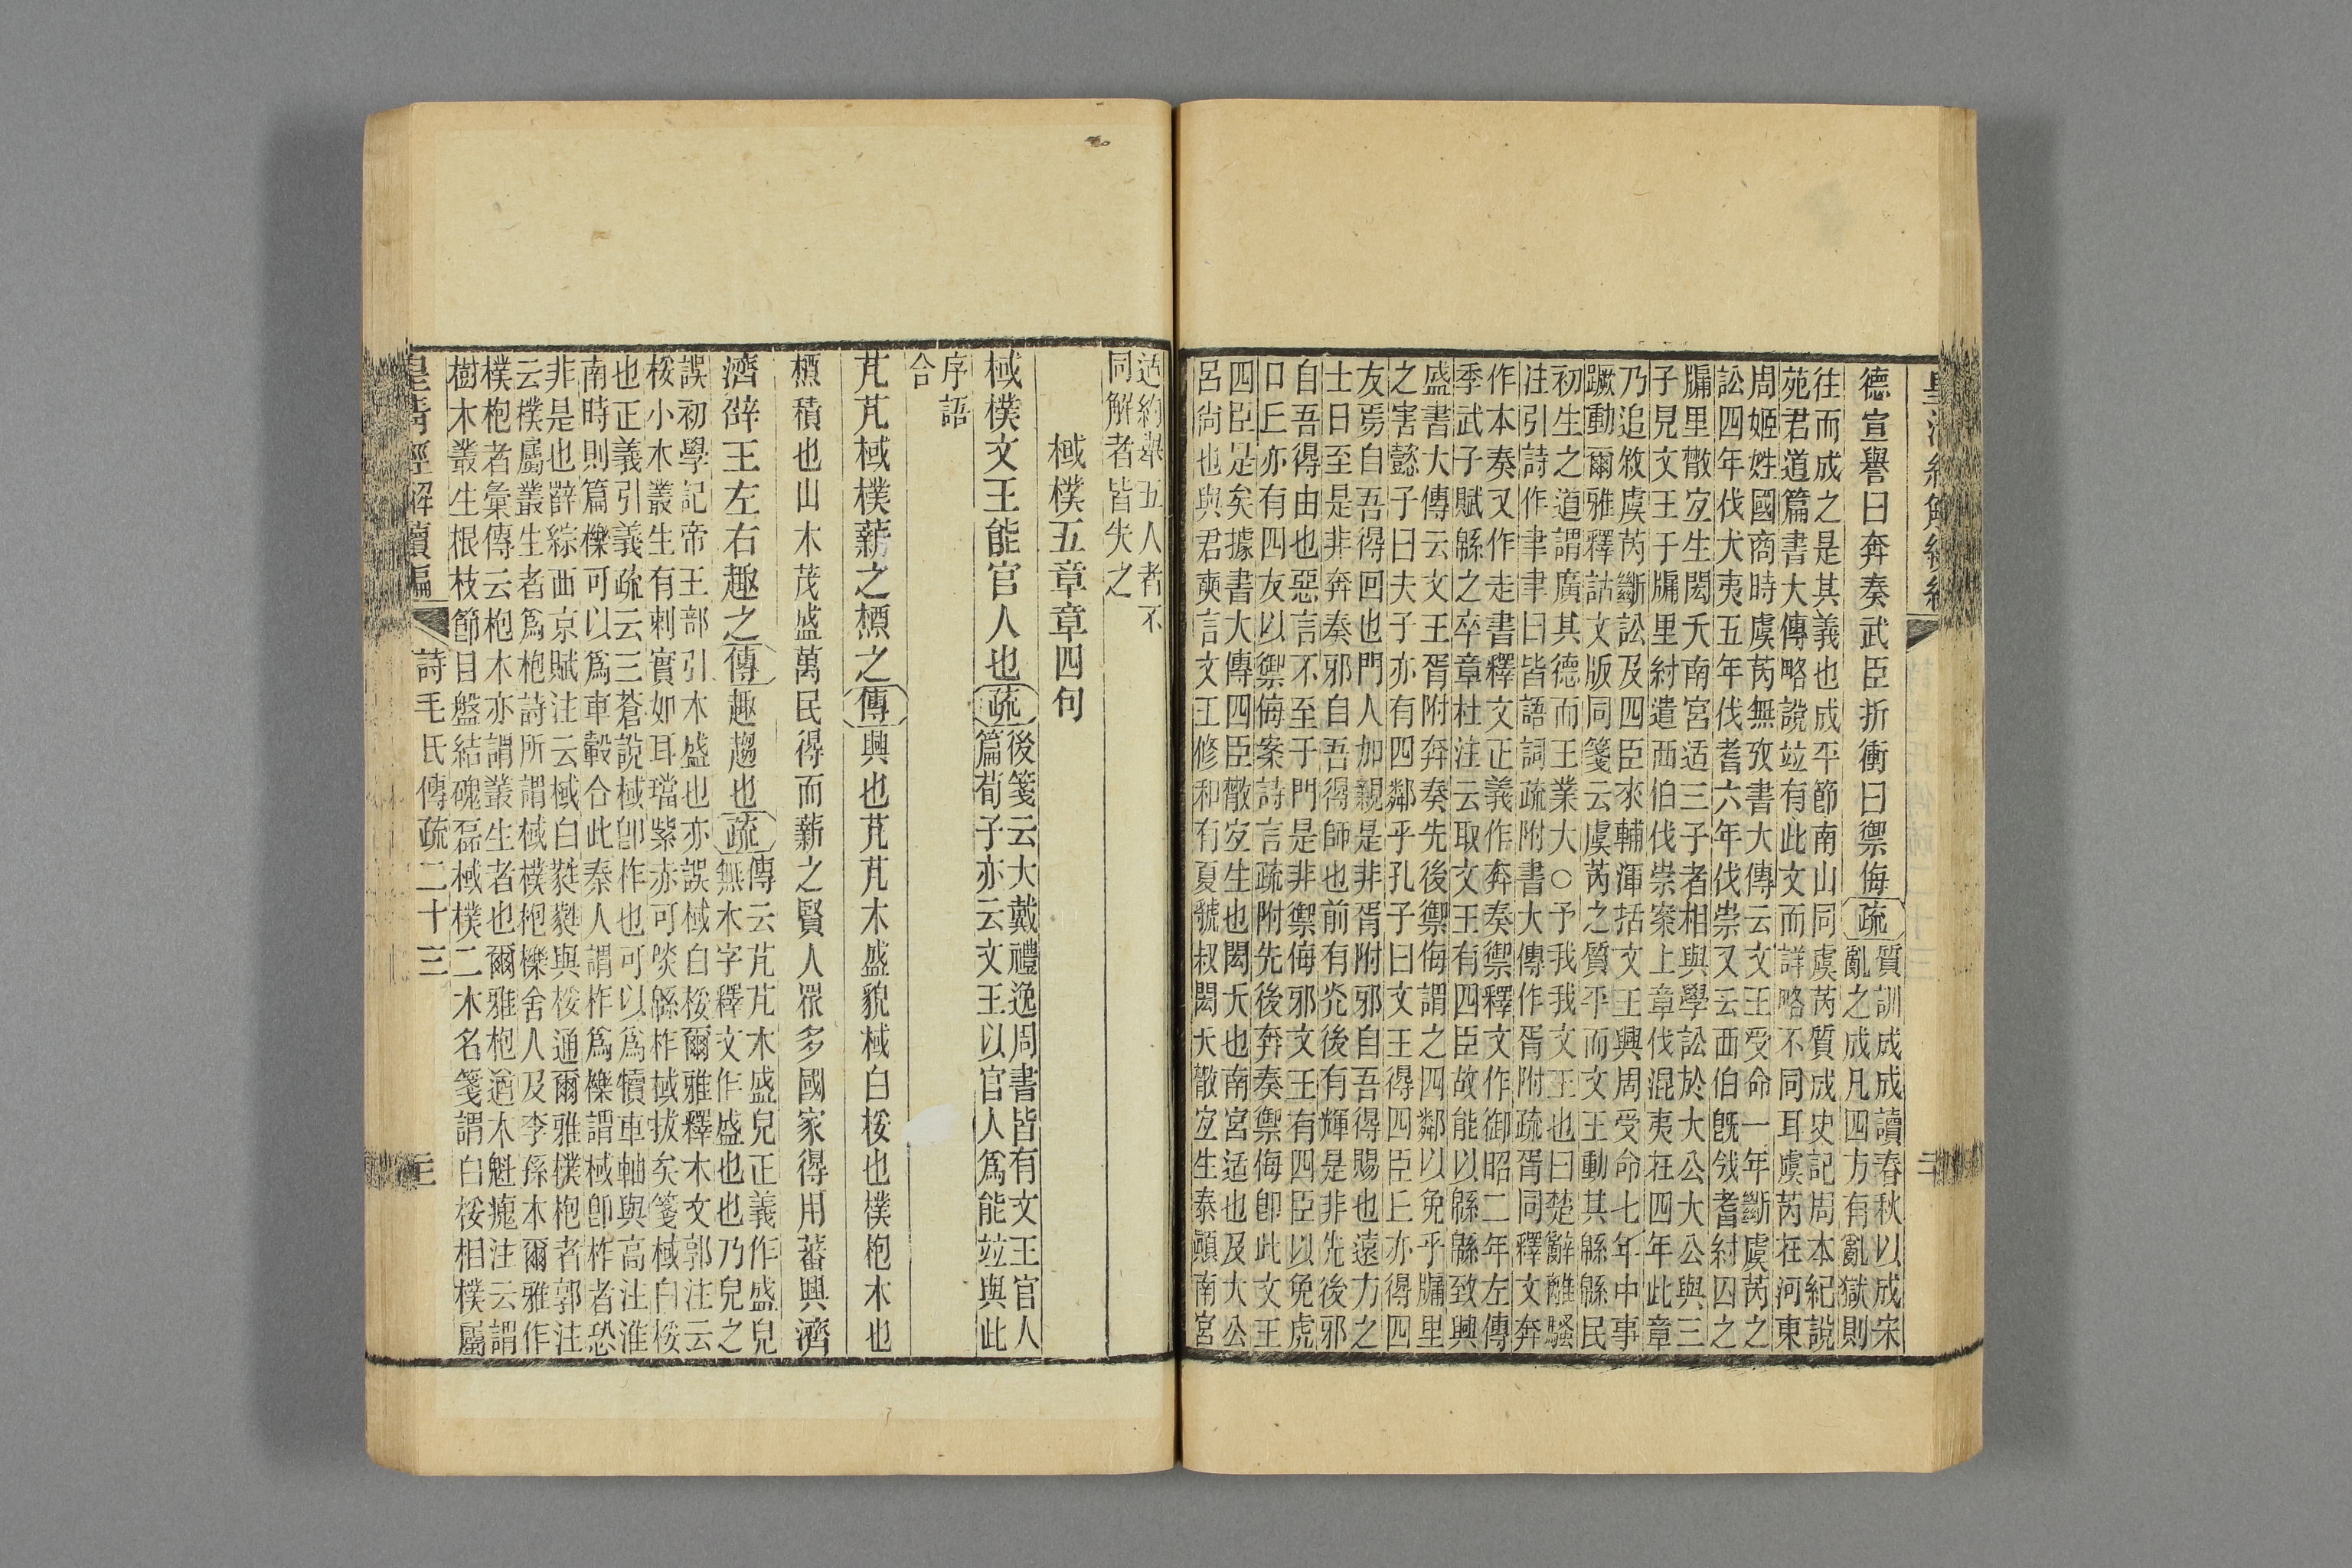 德宣譽曰奔奏武臣折衝曰禦侮疏質訓成成讀春秋以成宋
亂之成凡四方有亂獄則
往而成之是其義也成平節南山同虞芮質成史記周本紀說
苑君道篇書大傳略說竝有此文而詳略不同耳虞芮在河東
周姬姓國商時虞芮無攷書大傳云文王受命一年斷虞芮之
訟四年伐犬夷五年伐耆六年伐崇又云西伯旣戗耆紂囚之
牖里散宜生閎夭南宮适三子者相與學訟於大公大公與三
子見文王于牖里紂遣西伯伐崇案上章伐混夷在四年此章
乃追敘虞芮斷訟及四臣來輔渾括文王興周受命七年中事
蹶動爾雅釋詁文版同箋云虞芮之質平而文王動其緜緜民
初生之道謂廣其德而王業大○予我我文王也曰楚辭離騷
注引詩作聿聿曰皆語詞疏附書大傳作胥附疏胥同釋文奔
作本奏又作走書釋文正義作奔奏禦釋文作御昭二年左傳
季武子賦緜之卒章杜注云取文王有四臣故能以緜緜致興
盛書大傳云文王胥附奔奏先後禦侮謂之四鄰以免乎牖里
之害懿子曰夫子亦有四鄰乎孔子曰文王得四臣丘亦得四
友焉自吾得回也門人加親是非胥附邪自吾得賜也遠方之
士日至是非奔奏邪自吾得師也前有炎後有輝是非先後邪
自吾得由也惡言不至于門是非禦侮邪文王有四臣以免虎
口丘亦有四友以禦侮案詩言疏附先後奔奏禦侮卽此文王
四臣是矣據書大傳四臣散宜生也閎夭也南宮适也及大公
呂尙也與君奭言文王修和有夏虢叔閎夭散宜生泰顚南宮
适約舉五人者不
同解者皆失之
棫樸五章章四句
棫樸文王能官人也疏後箋云大戴禮逸周書皆有文王官人
篇荀子亦云文王以官人爲能竝與此
序語
合
芃芃棫樸薪之槱之傳興也芃芃木盛貌棫白桵也樸枹木也
槱積也山木茂盛萬民得而薪之賢人眾多國家得用蕃興濟
濟辟王左右趣之傳趣趨也疏傳云芃芃木盛皃正義作盛皃
無木字釋文作盛也也乃皃之
誤初學記帝王部引木盛也亦誤棫白桵爾雅釋木文郭注云
桵小木叢生有刺實如耳璫紫赤可啖緜柞棫拔矣箋棫白桵
也正義引義疏云三蒼說棫卽柞也可以爲犢車軸與高注淮
南時則篇櫟可以爲車轂合此秦人謂柞爲櫟謂棫卽柞者恐
非是也薛綜西京賦注云棫白蕤蕤與桵通爾雅樸枹者郭注
云樸屬叢生者爲枹詩所謂棫樸枹櫟舍人及李孫本爾雅作
樸枹者彙傳云枹木亦謂叢生者也爾雅枹遒木魁瘣注云謂
樹木叢生根枝節目盤結磈磊棫樸二木名箋謂白桵相樸屬
皇清經解續編 詩毛氏傳疏二十三